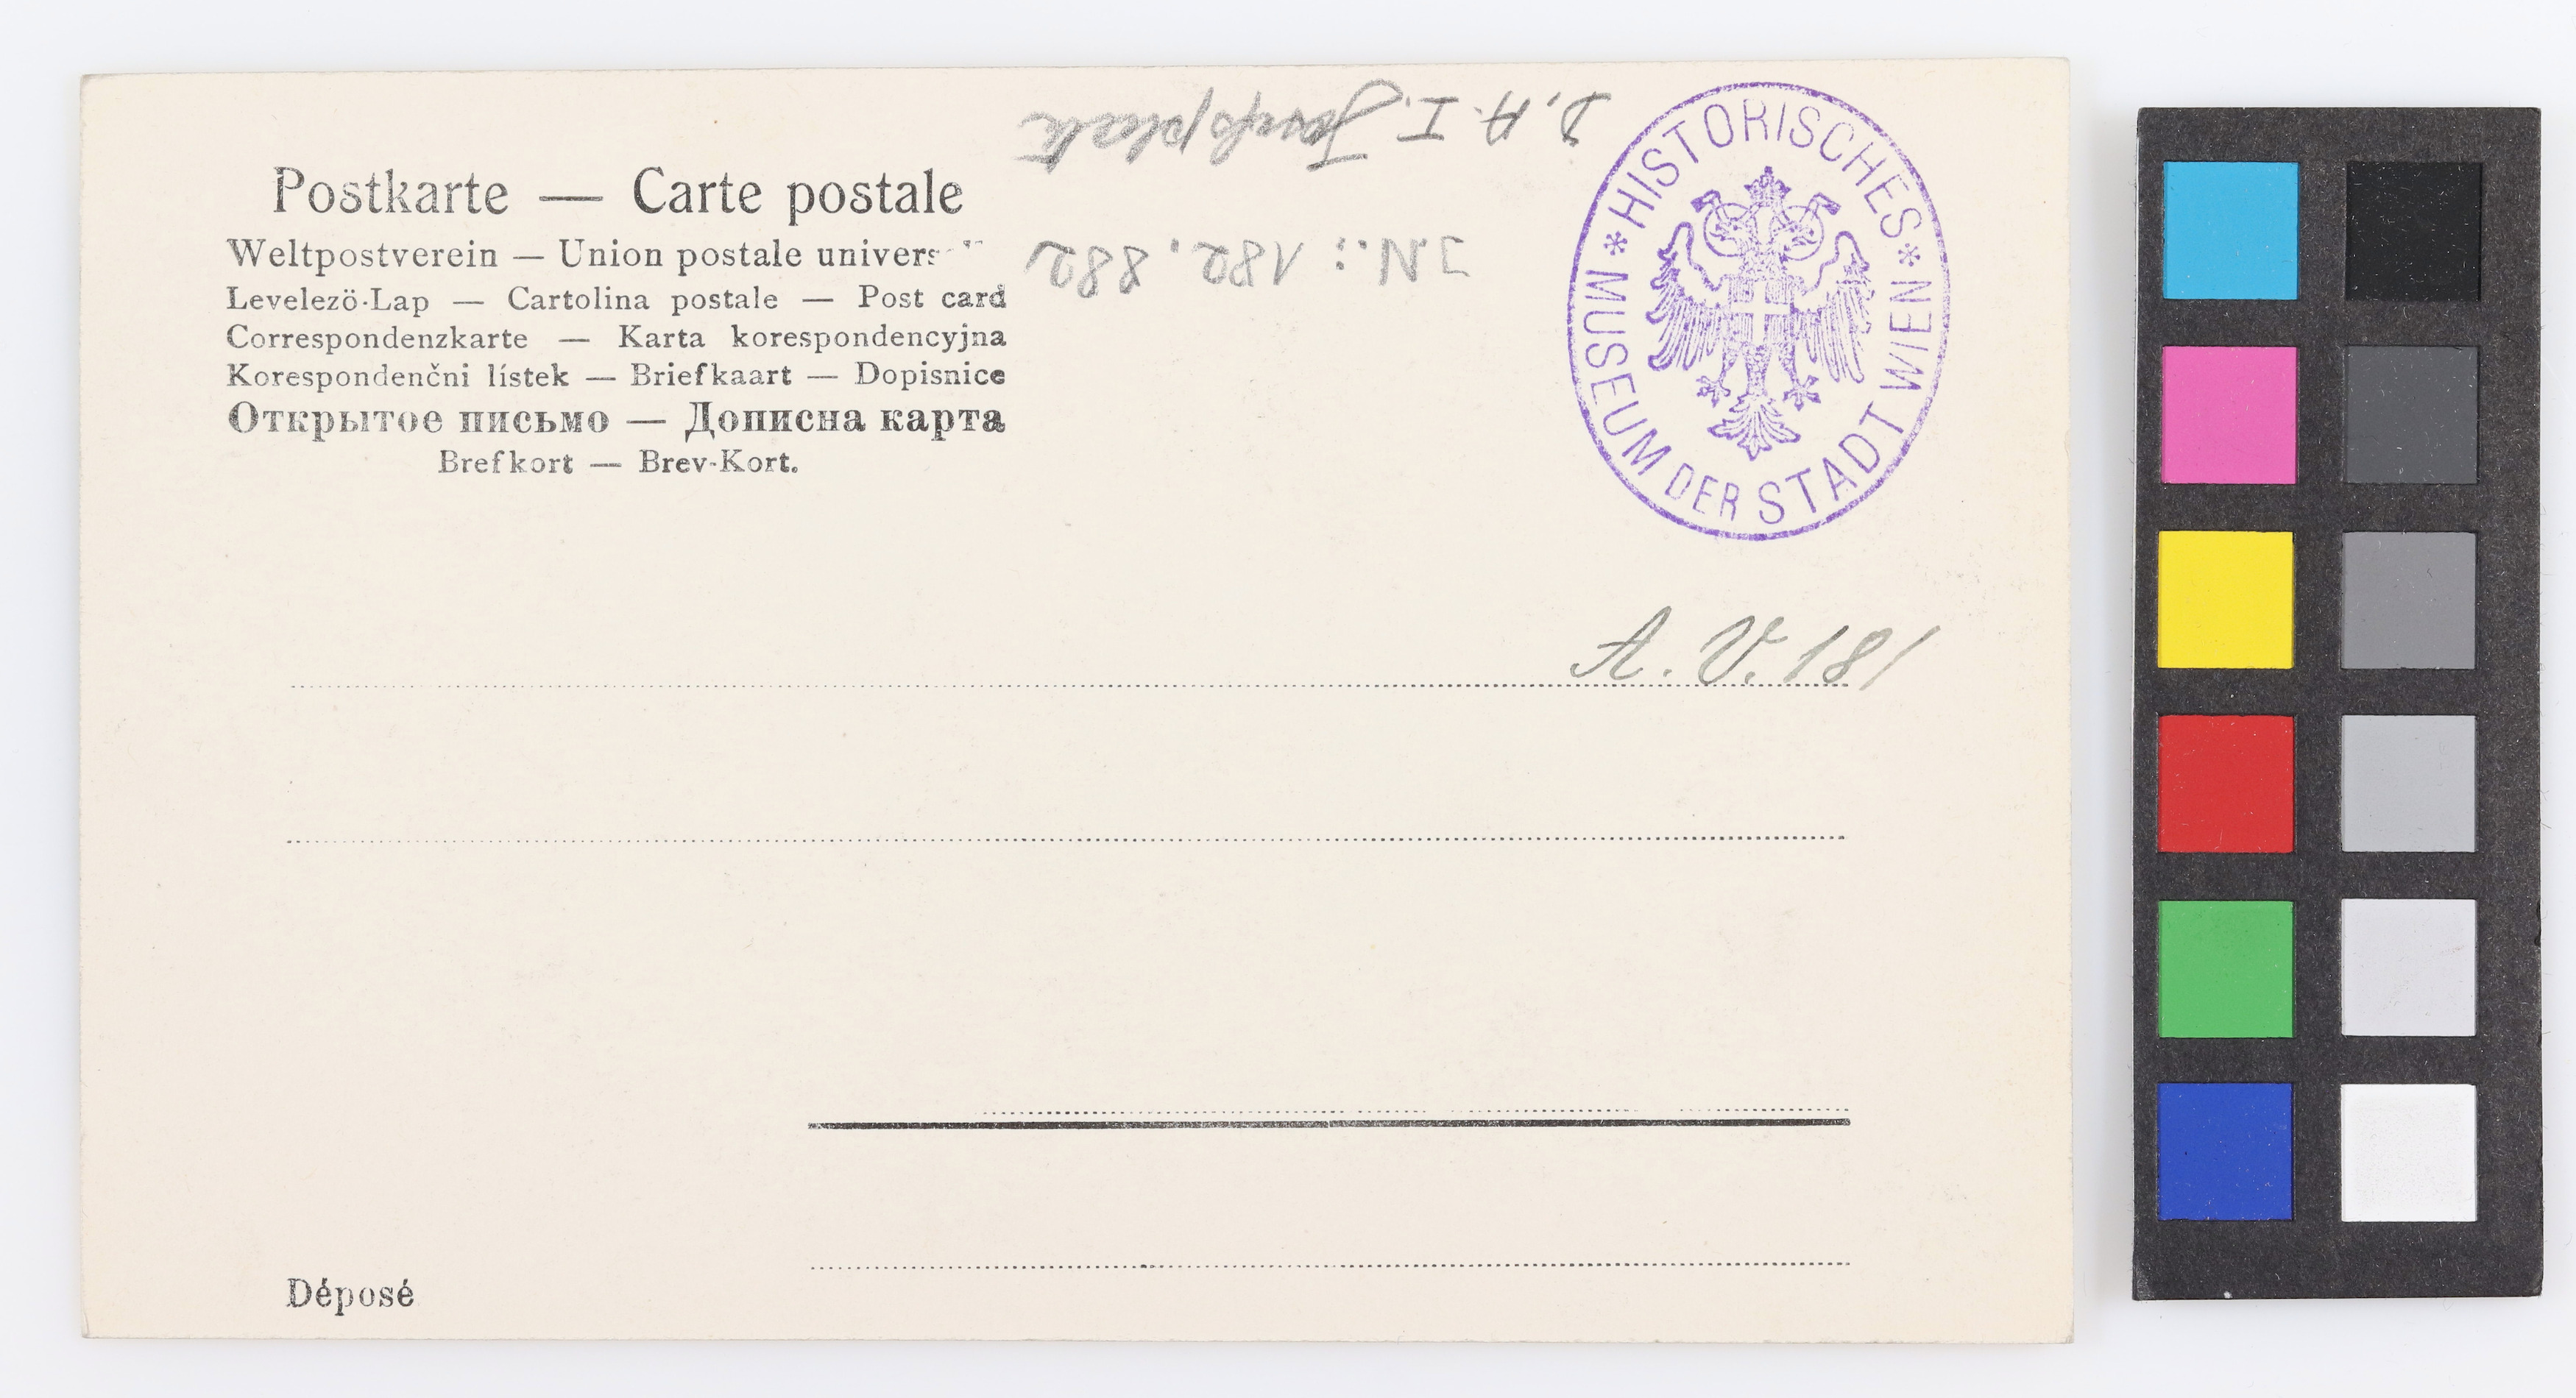 Postkarte — Carte postale
Weltpostverein — Union postale univers
Levelezö-Lap — Cartolina postale — Post card
Correspondenzkarte — Karta korespondencyjna
Korespondenčni lístek — Briefkaart — Dopisnice
Открытое письмо — Дописна карта
Brefkort — Brev-Kort.
D. A. I. Josefsplatz
I.N.: 182.882
* HISTORISCHES *
MUSEUM DER STADT WIEN
A. V. 181
Déposé